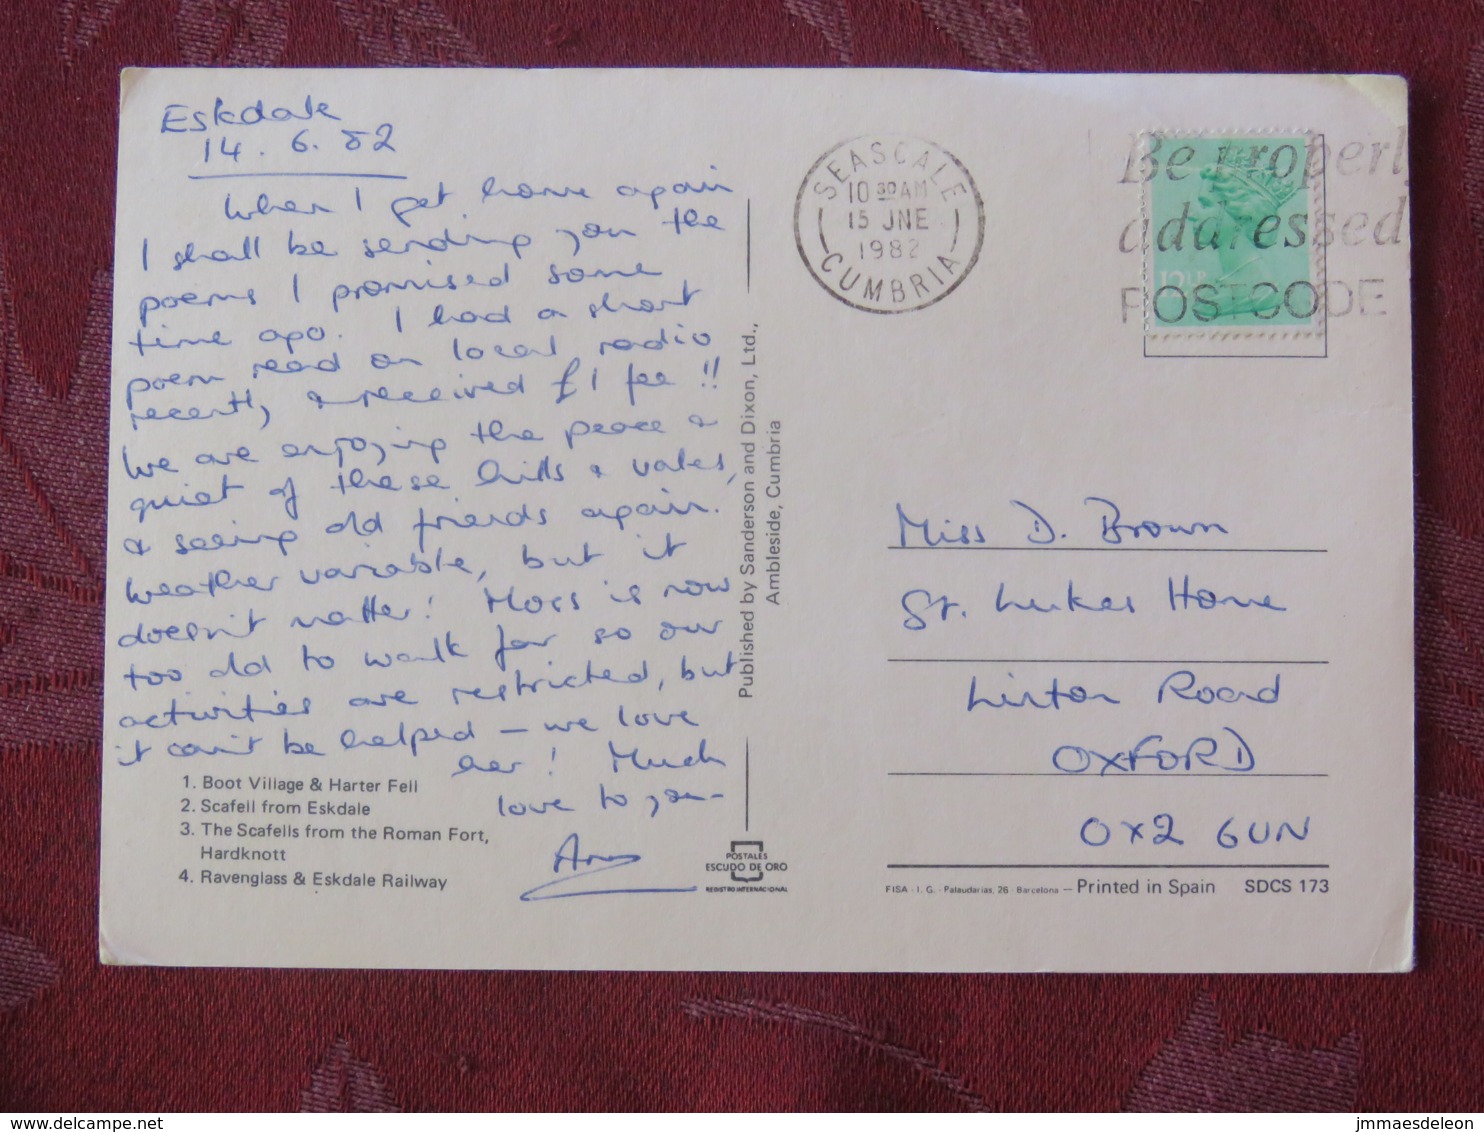 Eskdale
14.6.82
When I get home again
I shall be sending you the
poems I promised some
time ago. I had a short
poem read on local radio
recently, & received £1 fee!!
We are enjoying the peace &
quiet of these hills & vales,
& seeing old friends again.
Weather variable, but it
doesn't matter! Moss is now
too old to walk far so our
activities are restricted, but
it can't be helped – we love
her! Much
love to you –
1. Boot Village & Harter Fell
2. Scafell from Eskdale
3. The Scafells from the Roman Fort,
Hardknott
4. Ravenglass & Eskdale Railway
Published by Sanderson and Dixon, Ltd.,
Ambleside, Cumbria
POSTALES
ESCUDO DE ORO
REGISTRO INTERNACIONAL
SEASCALE
10 30 AM
15 JNE
1982
CUMBRIA
Be properly
addressed
POSTCODE
12½P
Miss D. Brown
St. Lukes Home
Linton Road
OXFORD
OX2 6UN
FISA - I. G. - Palaudarias, 26 - Barcelona – Printed in Spain SDCS 173
delcampe.net
jmmaesdeleon